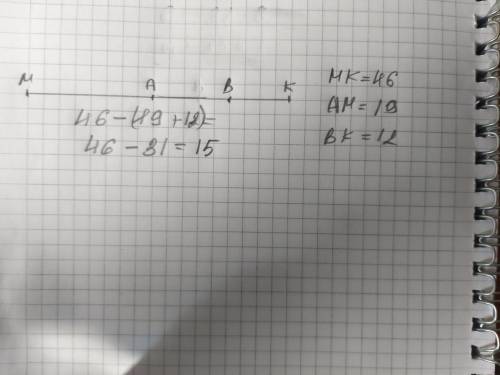 M A B K
46-(19+12)=
46-31=15
MK=46
AM=19
BK=12